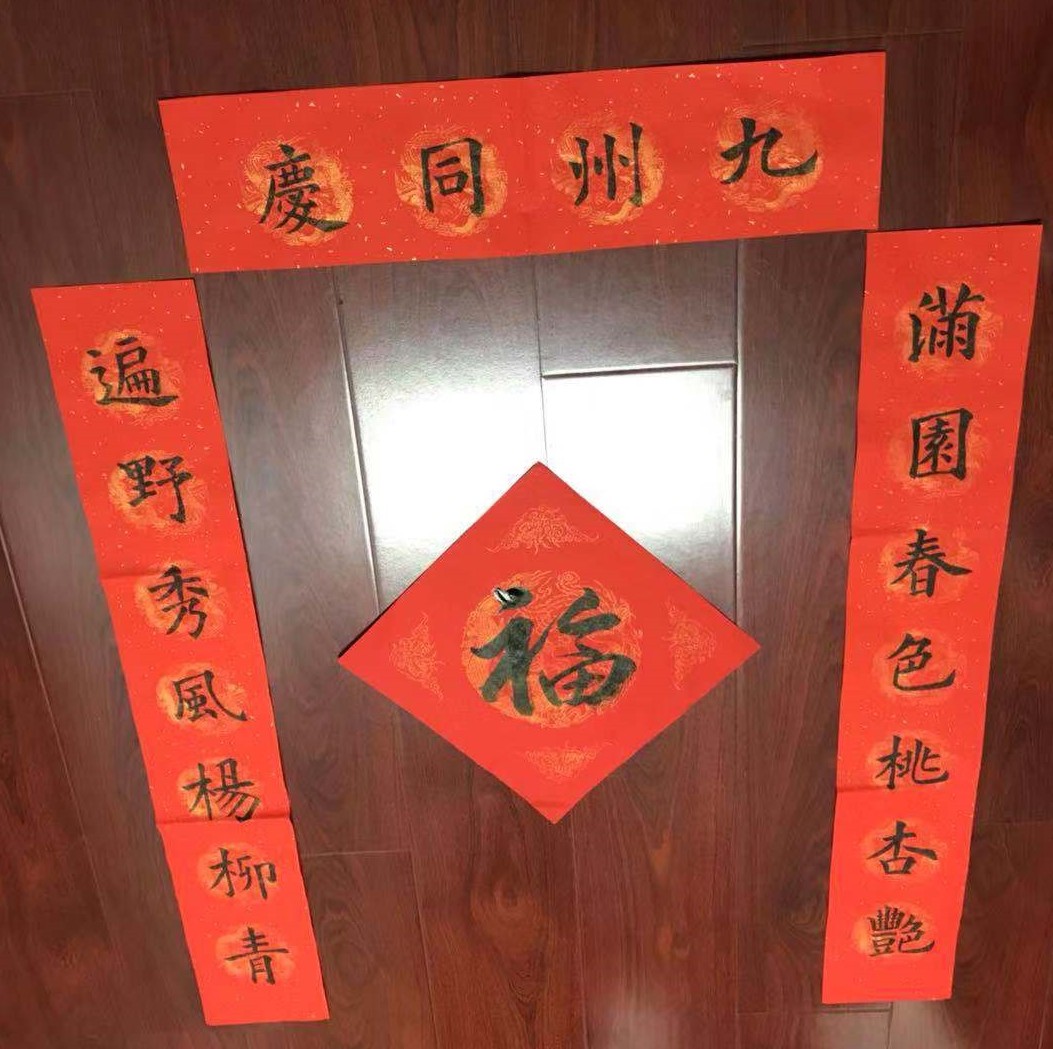 九州同慶
滿園春色桃杏艷
遍野秀風楊柳青
福